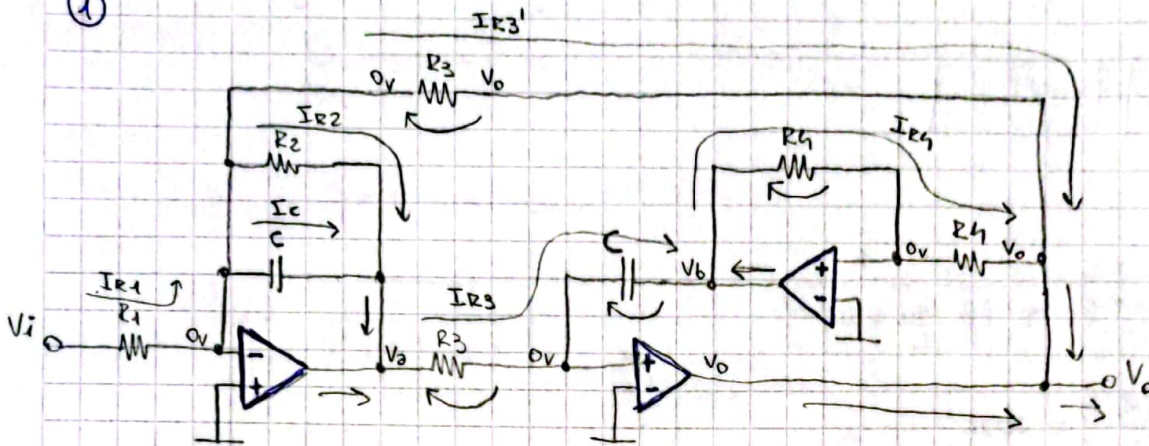 1
IR3'
0v R3 Vo
IR2
R2
IR4
R4
Ic
C
C
Vb
0v R4 Vo
+
-
IR1
R1
Vi
0v
-
+
IR3
Va
R3
0v
+
-
Vo
Vo